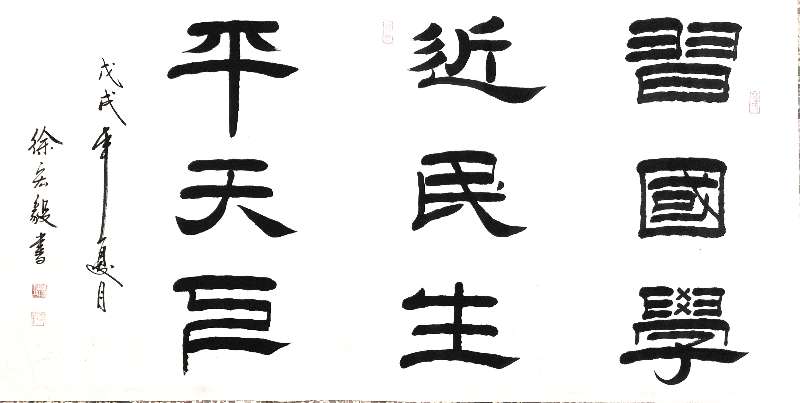 習國學
近民生
平天
戊戌年夏月
徐宏毅書